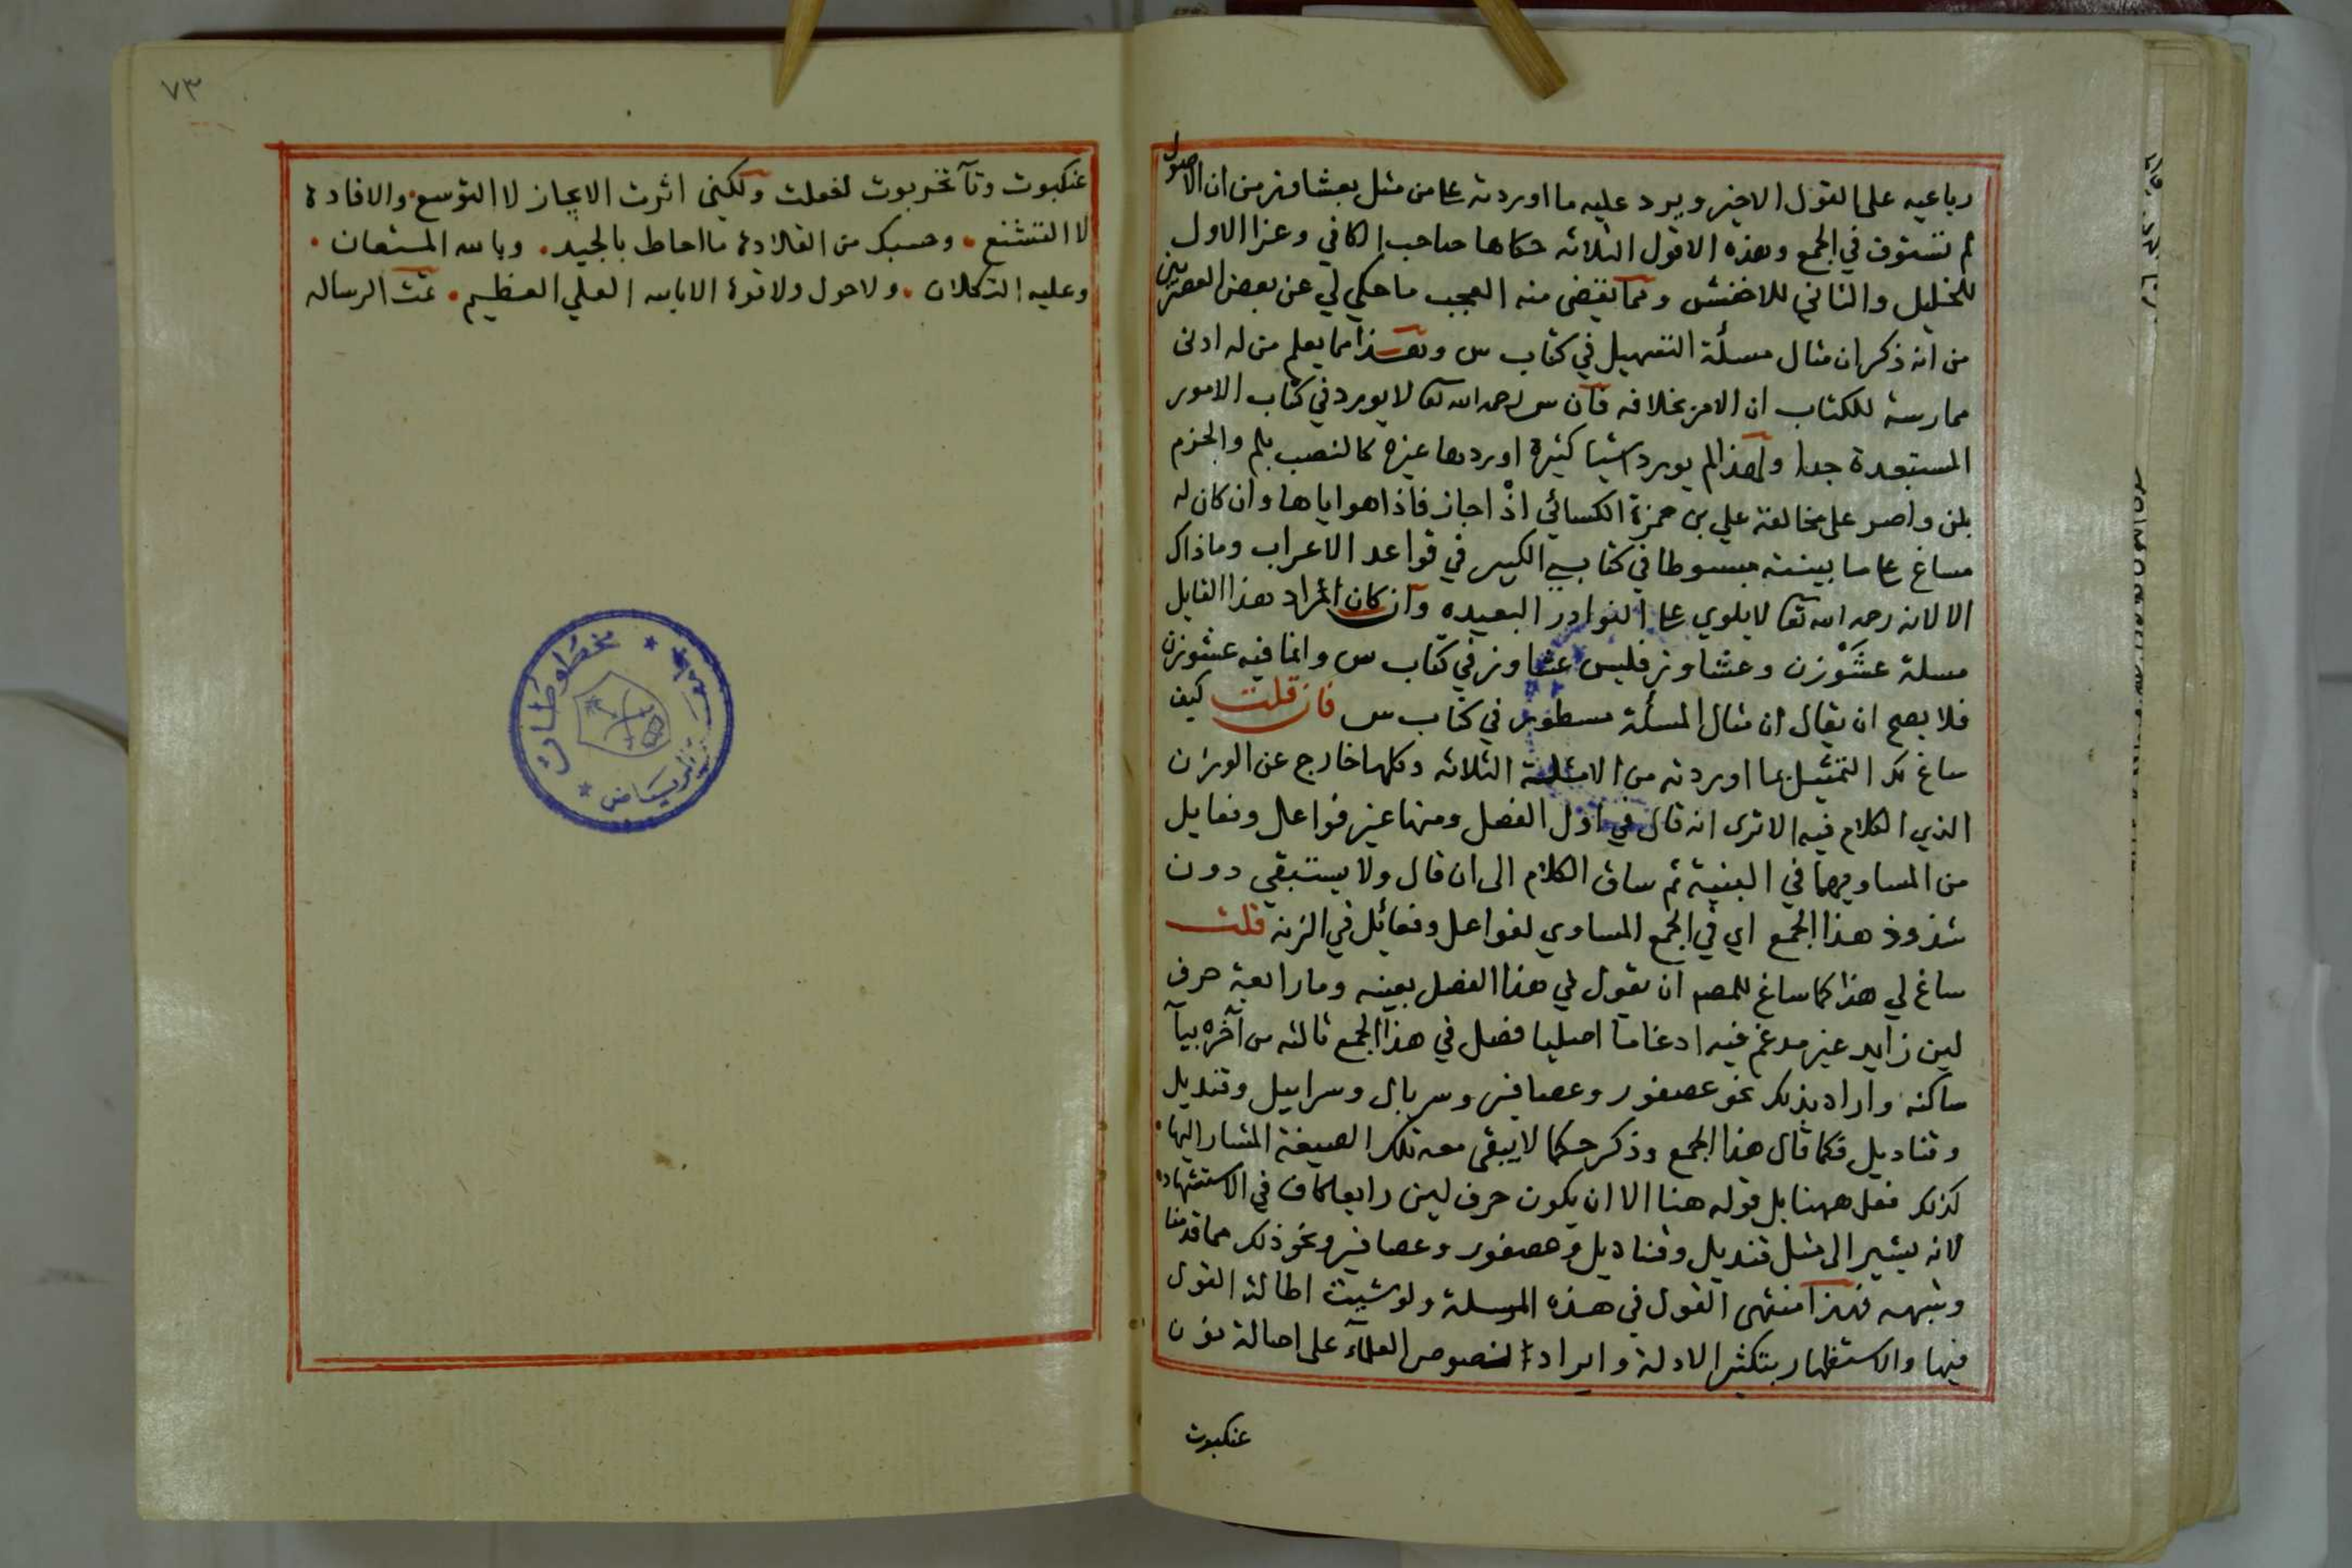 رباعيه على القول الاخير ويرد عليه ما اوردته على من مثل بعشاوز من ان الاصول
لم تستوف في الجمع وهذه الاقول الثلاثه حكاها صاحب الكافي وعزا الاول
للخليل والثاني للاخفش ومما يقضى منه العجب ما حكي لي عن بعض العصريين
من انه ذكر ان مثال مسألة التسهيل في كتاب س وهذا مما يعلم من له ادنى
ممارسة للكتاب ان الامر بخلافه فان س رحمه الله تعا لا يورد في كتاب الامور
المستبعدة جدا ولهذا لم يورد اشيا كثيرة اوردها غيره كالنصب بلم والجزم
بلن واصر على مخالفة علي بن حمزة الكسائي اذْ اجاز فاذا هو اياها وان كان له
مساغ على ما بينته مبسوطا في كتابي الكبير في قواعد الاعراب وما ذاك
الا لانه رحمه الله تعا لا يلوي على النوادر البعيده وان كان المراد هذا القايل
مسلة عشَوْزن وعشاوز فليس عشاوز في كتاب س وانما فيه عشوزن
فلا يصح ان يقال ان مثال المسألة مسطور في كتاب س فان قلت كيف
ساغ لك التمثيل بما اوردته من الامثلة الثلاثه وكلها خارج عن الوزن
الذي الكلام فيه الا ترى انه قال في اول الفصل ومنها غير فواعل وفعايل
من المساويهما في البنية ثم ساق الكلام الى ان قال ولا يستبقي دون
شذوذ هذا الجمع اي في الجمع المساوي لفواعل وفعائل في الزنه قلت
ساغ لي هذا كما ساغ للمصم ان يقول في هذا الفصل بعينه وما رابعة حرف
لين زايد غير مدغم فيه ادغاما اصليا فصل في هذا الجمع ثالثه من آخره بيآ
ساكنه واراد بذلك نحو عصفور وعصافير وسربال وسرابيل وقنديل
وقناديل فكما قال هذا الجمع وذكر حكما لا يبقى معه تلك الصيغة المشار اليها
كذلك فعل ههنا بل قوله هنا الا ان يكون حرف لين رابعا كاف في الاستشهاد
لانه يشير الى مثل قنديل وقناديل وعصفور وعصافير ونحو ذلك مما قدمنا
وشبهه فهذا منتهى القول في هذه المسلة ولو شيت اطالة القول
فيها والاستظهار بتكثير الادلة وايراد النصوص العلمآء على اصالة نون
عنكبوت
٧٣
عنكبوت وتآ تخربوت لفعلت ولكنى اثرت الايجاز لا التوسع والافادة
لا التشنع وحسبك من القلادة ما احاط بالجيد وبالله المستعان
وعليه التكلان ولا حول ولا قوة الا بالله العلي العظيم تمت الرساله
مخطوطات
الرياض